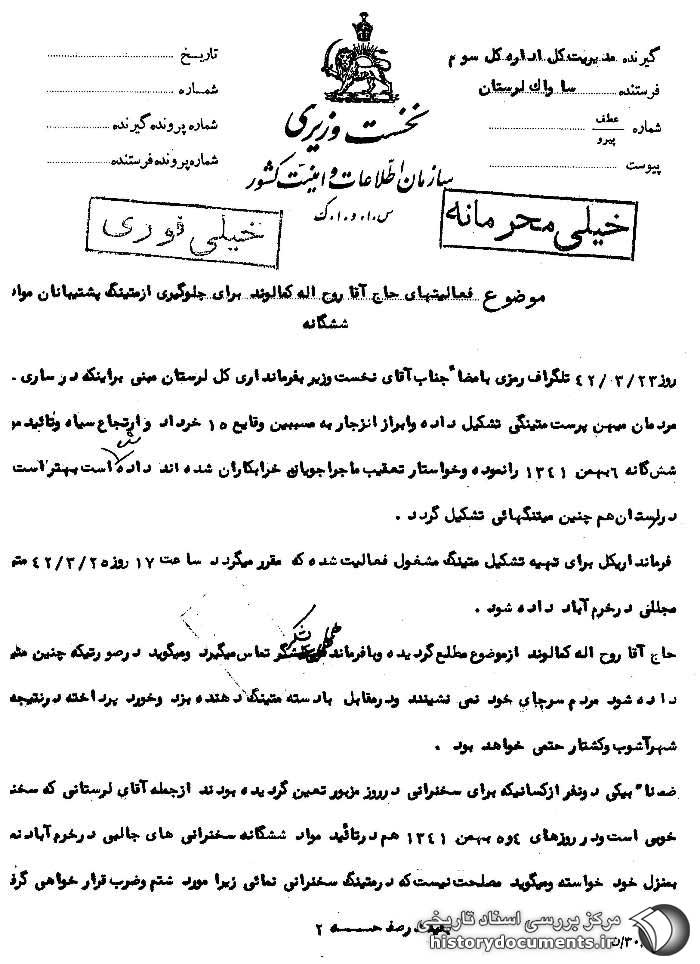 گیرنده مدیریت کل اداره کل سوم
فرستنده ساواک لرستان
شماره عطف پیرو
پیوست
تاریخ
شماره
شماره پرونده گیرنده
شماره پرونده فرستنده
نخست وزیری
سازمان اطلاعات و امنیت کشور
س.ا.و.ا.ک
خیلی محرمانه
خیلی فوری
موضوع فعالیتهای حاج آقا روح اله کمالوند برای جلوگیری از متینگ پشتیبانان مواد
ششگانه
روز ۴۲/۰۳/۲۳ تلگراف رمزی بامضاء جناب آقای نخست وزیر بفرمانداری کل لرستان مبنی براینکه در ساری
مردمان میهن پرست متینگی تشکیل داده وابراز انزجار به مسببین وقایع ۱۵ خرداد و ارتجاع سیاه وتائید
شش گانه ۶ بهمن ۱۳۴۱ رانموده وخواستار تعقیب ماجراجویان خرابکاران شده اند داده است بهتر است
درلرستان هم چنین میتنگهائی تشکیل گردد .
فرمانداریکل برای تهیه تشکیل متینگ مشغول فعالیت شده که مقرر میگردد ساعت ۱۷ روز ۴۲/۳/۲۵
مجللی درخرم آباد داده شود .
حاج آقا روح اله کمالوند ازموضوع مطلع گردیده وبافرماندار لشکر تماس میگیرد ومیگوید درصورتیکه چنین
داده شود مردم سرجای خود نمی نشینند ودرمقابل بادسته متینگ دهنده بزد وخورد پرداخته درنتیجه
شهر آشوب وکشتار حتمی خواهد بود .
ضمنا" بیکی دونفر ازکسانیکه برای سخنرانی درروز مزبور تعین گردیده بودند ازجمله آقای لرستانی که
خوبی است ودر روزهای ۴و۵ بهمن ۱۳۴۱ هم درتائید مواد ششگانه سخنرانی های جالبی درخرم آباد
بمنزل خود خواسته ومیگوید مصلحت نیست که درمتینگ سخنرانی نمائی زیرا مورد شتم وضرب قرار خواهی
بقیه درصفحه ۲
مرکز بررسی اسناد تاریخی
historydocuments.ir